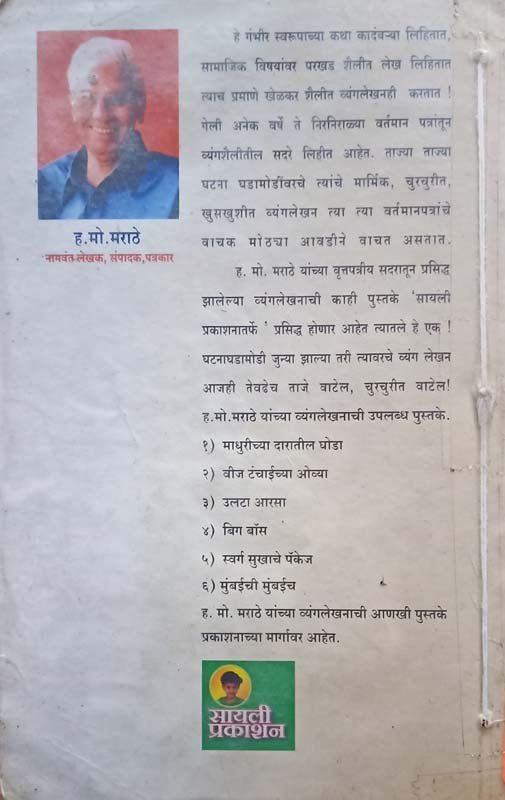 हे गंभीर स्वरूपाच्या कथा कादंबऱ्या लिहितात,
सामाजिक विषयांवर परखड शैलीत लेख लिहितात
त्याच प्रमाणे खेळकर शैलीत व्यंगलेखनही करतात !
गेली अनेक वर्षे ते निरनिराळ्या वर्तमान पत्रांतून
व्यंगशैलीतील सदरे लिहीत आहेत. ताज्या ताज्या
घटना घडामोडींवरचे त्यांचे मार्मिक, चुरचुरीत,
खुसखुशीत व्यंगलेखन त्या त्या वर्तमानपत्रांचे
वाचक मोठ्या आवडीने वाचत असतात.
ह.मो.मराठे
नामवंत लेखक, संपादक,पत्रकार
ह. मो. मराठे यांच्या वृत्तपत्रीय सदरातून प्रसिद्ध
झालेल्या व्यंगलेखनाची काही पुस्तके 'सायली
प्रकाशनातर्फे ' प्रसिद्ध होणार आहेत त्यातले हे एक !
घटनाघडामोडी जुन्या झाल्या तरी त्यावरचे व्यंग लेखन
आजही तेवढेच ताजे वाटेल, चुरचुरीत वाटेल!
ह.मो.मराठे यांच्या व्यंगलेखनाची उपलब्ध पुस्तके.
१) माधुरीच्या दारातील घोडा
२) वीज टंचाईच्या ओव्या
३) उलटा आरसा
४) बिग बॉस
५) स्वर्ग सुखाचे पॅकेज
६) मुंबईची मुंबईच
ह. मो. मराठे यांच्या व्यंगलेखनाची आणखी पुस्तके
प्रकाशनाच्या मार्गावर आहेत.
सायली
प्रकाशन